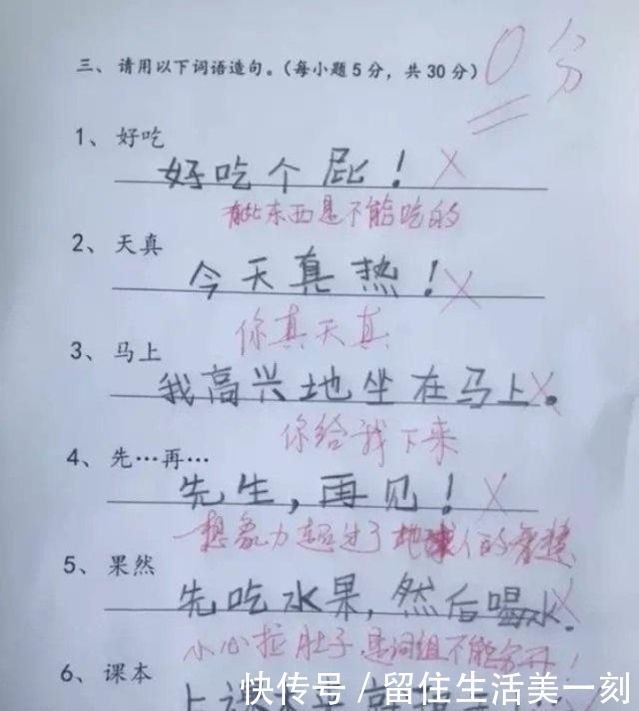 三、请用以下词语造句。(每小题5分，共30分) 0分
1、好吃
好吃个屁！
东西是不能吃的
2、天真
今天真热！
你真天真
3、马上
我高兴地坐在马上。
你给我下来
4、先…再…
先生，再见！
想象力超过了地球人的
5、果然
先吃水果，然后喝水.
小心拉肚子 是词组不能分开！
6、课本
快传号/留住生活美一刻